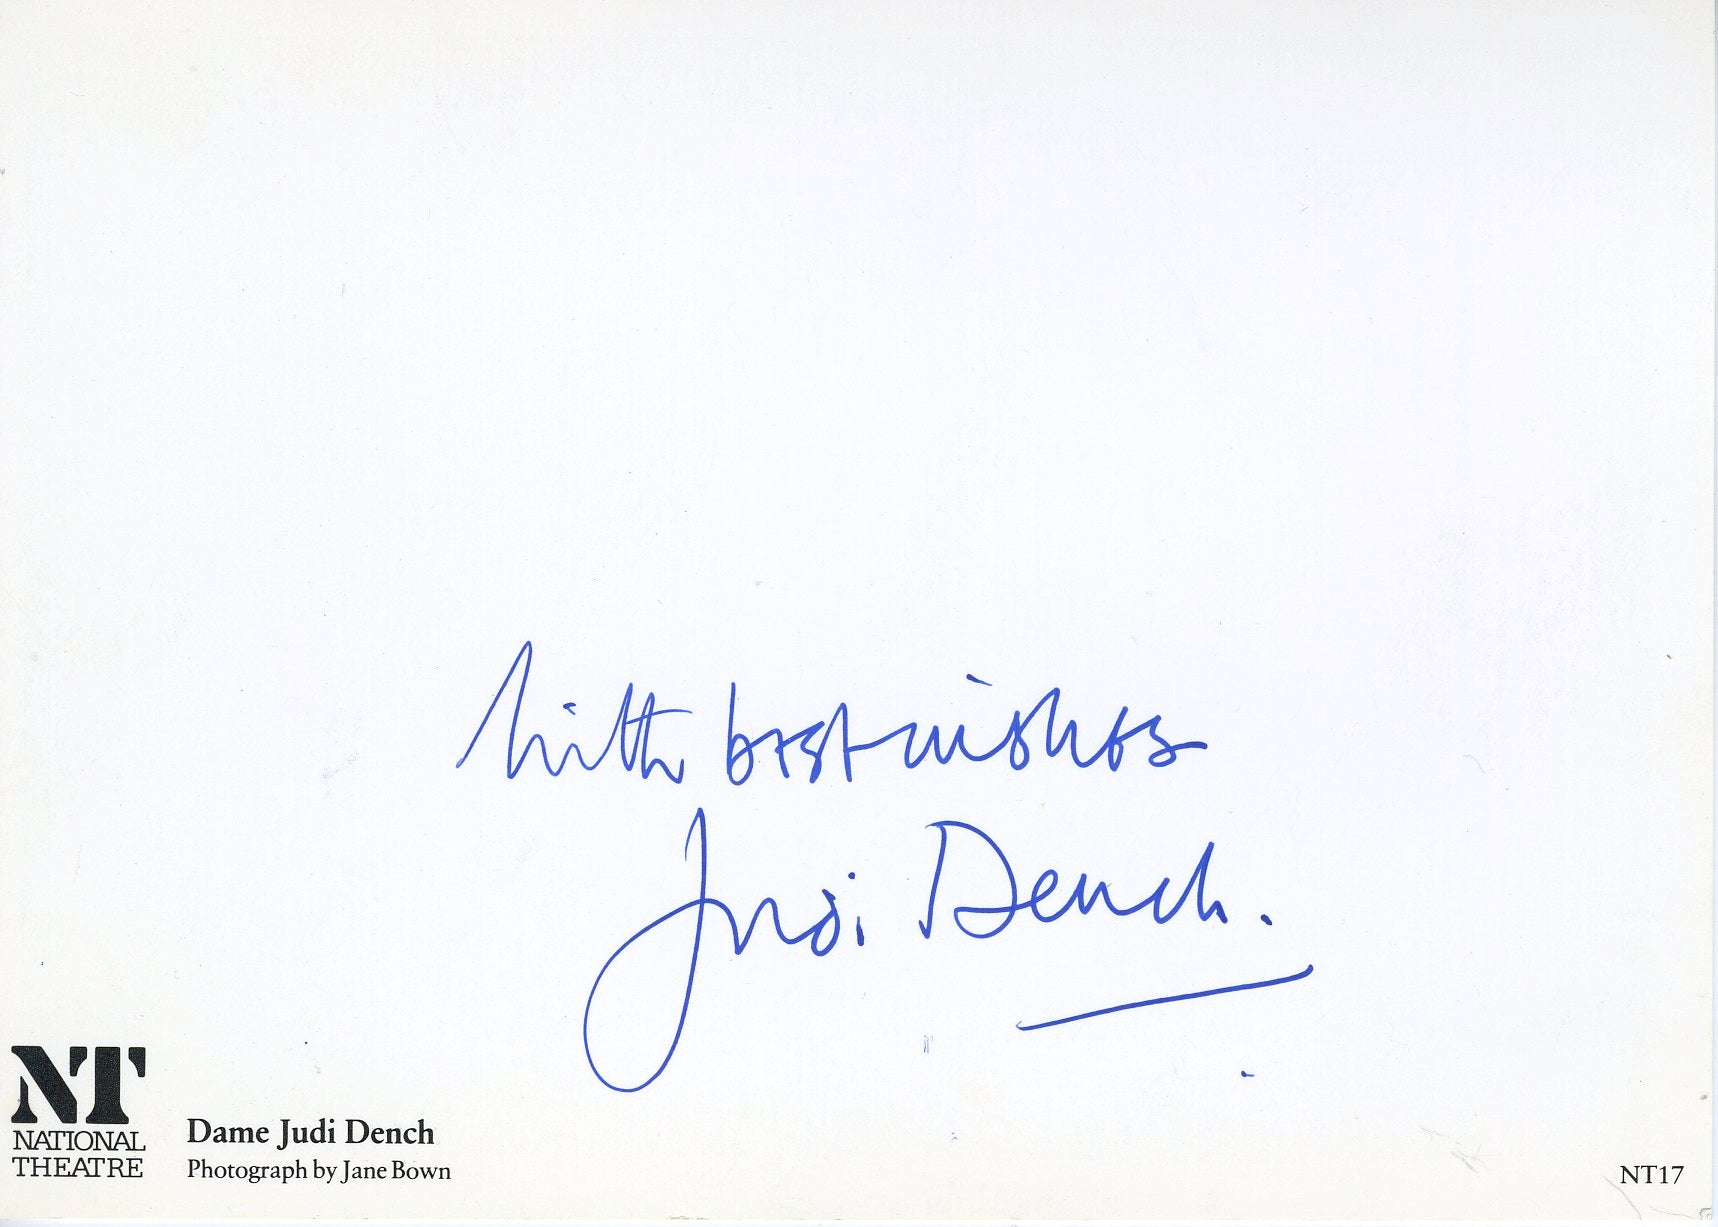 With best wishes
Judi Dench.
NT
NATIONAL
THEATRE
Dame Judi Dench
Photograph by Jane Bown
NT17